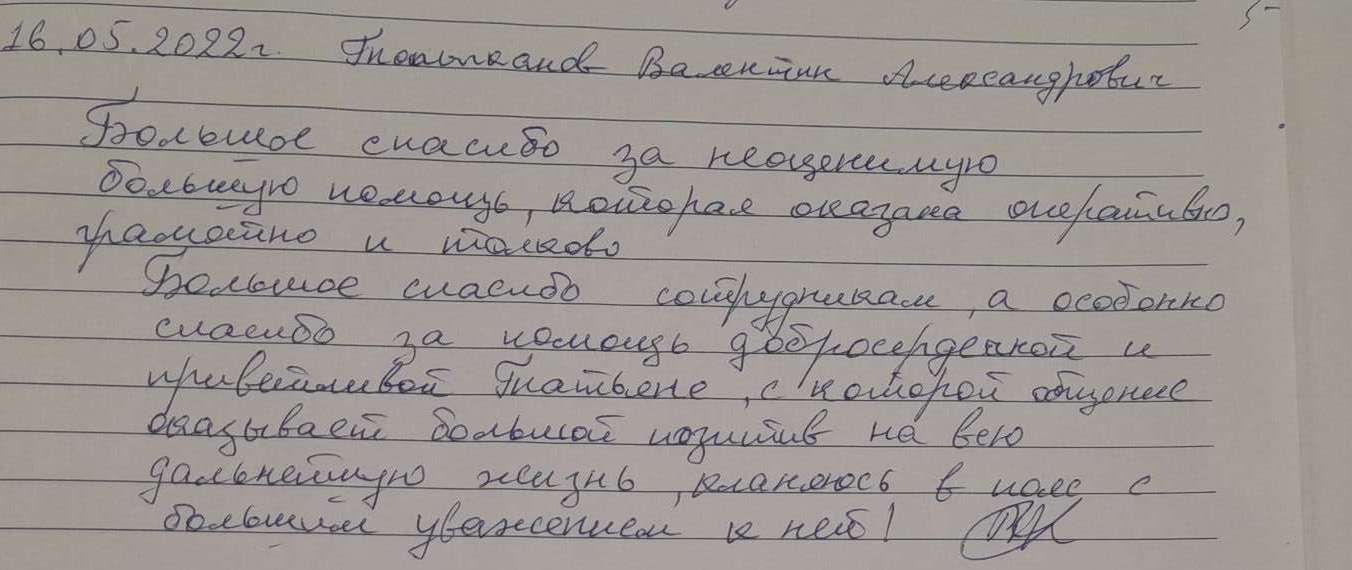 16.05.2022г. Валентин Александрович
Большое спасибо за неоценимую
большую помощь, которая оказана оперативно,
грамотно и толково
Большое спасибо сотрудникам, а особенно
спасибо за помощь добросердечной и
приветливой Татьяне, с которой общение
оказывает большой позитив на всю
дальнейшую жизнь, кланяюсь в пояс с
большим уважением к ней!